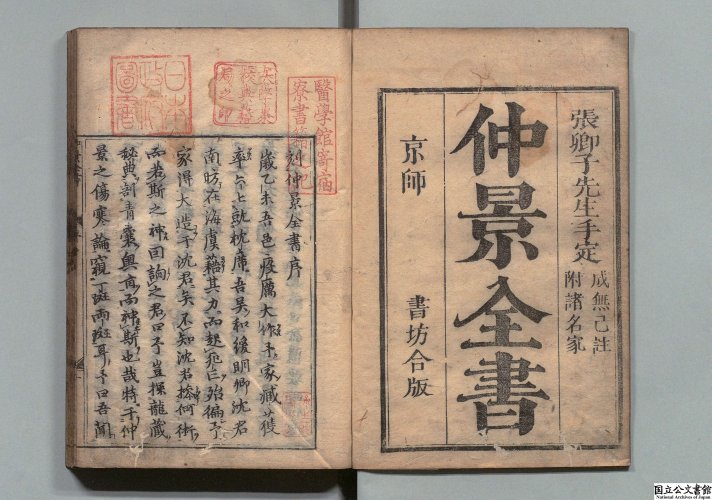 張卿子先生手定
成無己註
附諸名家
仲景全書
京師
書坊合版
醫學館寄宿
寮書籍記
日本
政府
圖書
刻仲景全書序
歲乙未吾邑疫厲大作予家臧獲
率六七就枕席吾吳和緩明卿沈君
南昉在海虞藉其力而起死亡殆徧予
家得大造于沈君矣不知沈君操何術
而若斯之神因詢之君曰予豈探龍藏
秘典剖青囊奧旨而神斯也哉特于仲
景之傷寒論窺一斑兩斑耳予曰吾聞
国立公文書館
National Archives of Japan